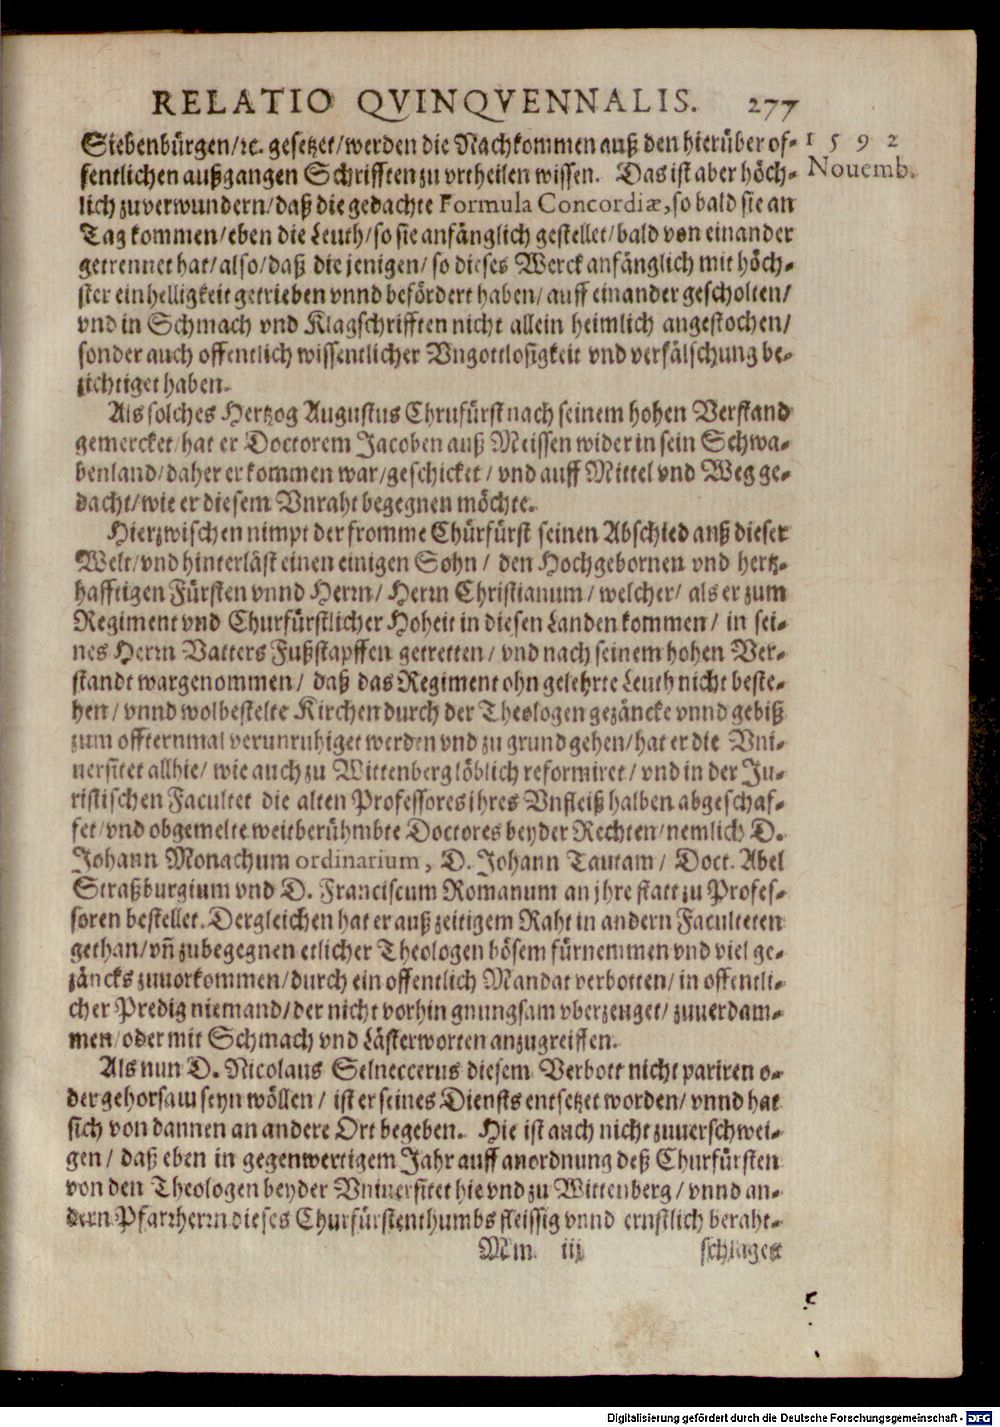 RELATIO QVINQVENNALIS. 277
Siebenbürgen/ ꝛc. gesetzet/ werden die Nachkommen auß den hierüber of-
fentlichen außgangen Schrifften zu vrtheilen wissen. Das ist aber höch-
lich zuverwundern/ daß die gedachte Formula Concordiæ, so bald sie an
Tag kommen/ eben die Leuth/ so sie anfänglich gestellet/ bald von einander
getrennet hat/ also/ daß die jenigen/ so dieses Werck anfänglich mit höch-
ster einhelligkeit getrieben vnnd befördert haben/ auff einander gescholten/
vnd in Schmach vnd Klagschrifften nicht allein heimlich angestochen/
sonder auch offentlich wissentlicher Vngottlosigkeit vnd verfälschung be-
zichtiget haben.
1592
Nouemb.
Als solches Hertzog Augustus Chrufürst nach seinem hohen Verstand
gemercket/ hat er Doctorem Jacoben auß Meissen wider in sein Schwa-
benland/ daher er kommen war/ geschicket/ vnd auff Mittel vnd Weg ge-
dacht/ wie er diesem Vnraht begegnen möchte.
Hierzwischen nimpt der fromme Chürfürst seinen Abschied auß dieser
Welt/ vnd hinterläst einen einigen Sohn/ den Hochgebornen vnd hertz-
hafftigen Fürsten vnnd Herrn/ Herrn Christianum/ welcher/ als er zum
Regiment vnd Churfürstlicher Hoheit in diesen Landen kommen/ in sei-
nes Herrn Vatters Fußstapffen getretten/ vnd nach seinem hohen Ver-
standt wargenommen/ daß das Regiment ohn gelehrte Leuth nicht beste-
hen/ vnnd wolbestelte Kirchen durch der Theologen gezäncke vnnd gebiß
zum offternmal verunruhiget werden vnd zu grund gehen/ hat er die Vni-
uersitet allhie/ wie auch zu Wittenberg löblich reformiret/ vnd in der Ju-
ristischen Facultet die alten Professores ihres Vnfleiß halben abgeschaf-
fet/ vnd obgemelte weitberühmbte Doctores beyder Rechten/ nemlich D.
Johann Monachum ordinarium, D. Johann Tautam/ Doct. Abel
Straßburgium vnd D. Franciscum Romanum an jhre statt zu Profes-
soren bestellet. Dergleichen hat er auß zeitigem Raht in andern Faculteten
gethan/ vñ zubegegnen etlicher Theologen bösem fürnemmen vnd viel ge-
zäncks zuuorkommen/ durch ein offentlich Mandat verbotten/ in offentli-
cher Predig niemand/ der nicht vorhin gnungsam vberzeuget/ zuuerdam-
men/ oder mit Schmach vnd Lästerworten anzugreiffen.
Als nun D. Nicolaus Selneccerus diesem Verbott nicht pariren o-
der gehorsam seyn wöllen/ ist er seines Diensts entsetzet worden/ vnnd hat
sich von dannen an andere Ort begeben. Hie ist auch nicht zuuerschwei-
gen/ daß eben in gegenwertigem Jahr auff anordnung deß Churfürsten
von den Theologen beyder Vniuersitet hie vnd zu Wittenberg/ vnnd an-
dern Pfarrherrn dieses Churfürstenthumbs fleissig vnnd ernstlich beraht-
Mm iij schlaget
Digitalisierung gefördert durch die Deutsche Forschungsgemeinschaft - DFG